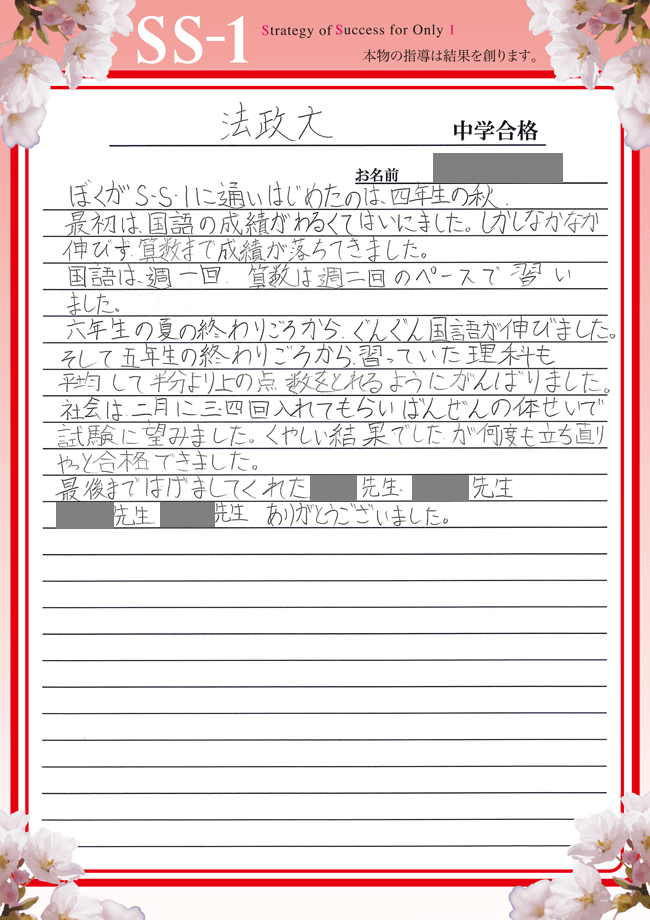 SS-1
Strategy of Success for Only 1
本物の指導は結果を創ります。
法政大 中学合格
お名前
ぼくがS-S-1に通いはじめたのは、四年生の秋.
最初は、国語の成績がわるくてはいにました。しかしなかなか
伸びず、算数まで成績が落ちてきました。
国語は、週一回、算数は週二回のペースで習い
ました。
六年生の夏の終わりごろから、ぐんぐん国語が伸びました。
そして五年生の終わりごろから、習っていた理科も
平均して半分より上の点数をとれるようにがんばりました。
社会は、二月に三、四回入れてもらいばんぜんの体せいで
試験に望みました。くやしい結果でしたが何度も立ち直り
やっと合格できました。
最後まではげましてくれた 先生、 先生
先生、 先生 ありがとうございました。